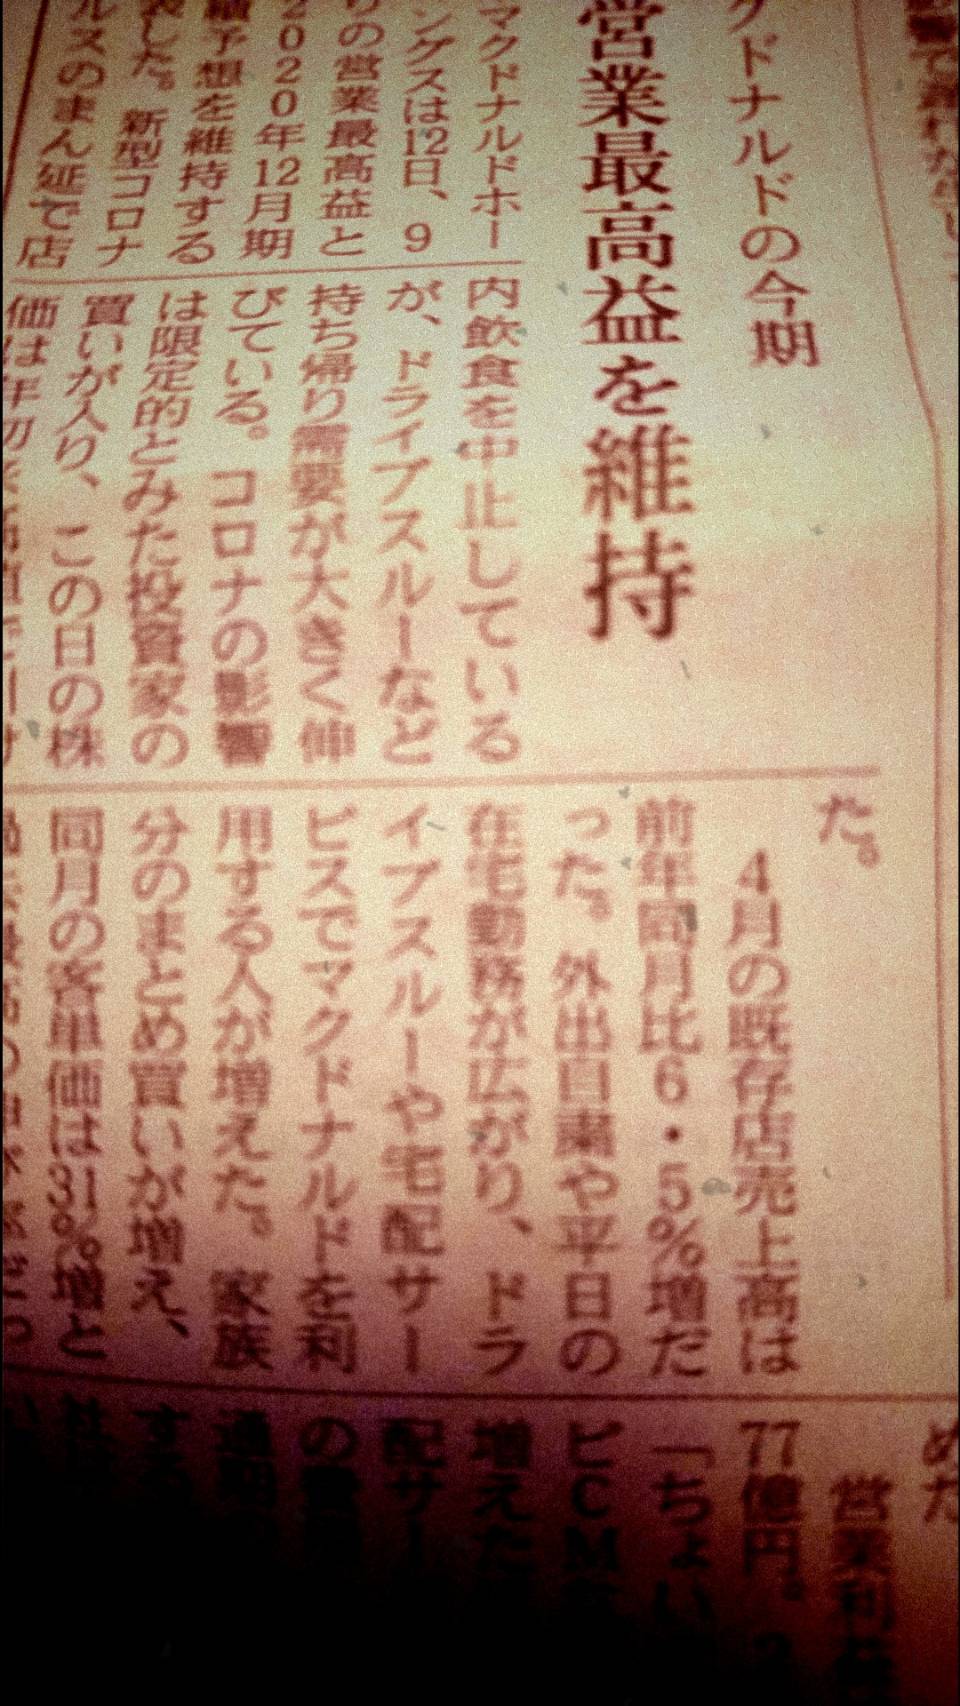 クドナルドの今期
営業最高益を維持
マクドナルドホー
ングスは12日、9
りの営業最高益と
2020年12月期
績予想を維持する
表した。新型コロナ
ルスのまん延で店
内飲食を中止している
が、ドライブスルーなど
持ち帰り需要が大きく伸
びている。コロナの影響
は限定的とみた投資家の
買いが入り、この日の株
た。
4月の既存店売上高は
前年同月比6・5%増だ
った。外出自粛や平日の
在宅勤務が広がり、ドラ
イブスルーや宅配サー
ビスでマクドナルドを利
用する人が増えた。家族
分のまとめ買いが増え、
同月の客単価は31%増と
めた
営業利益
77億円。
「ちょい
ビCM
増えた
配サー
の費用
通期
する